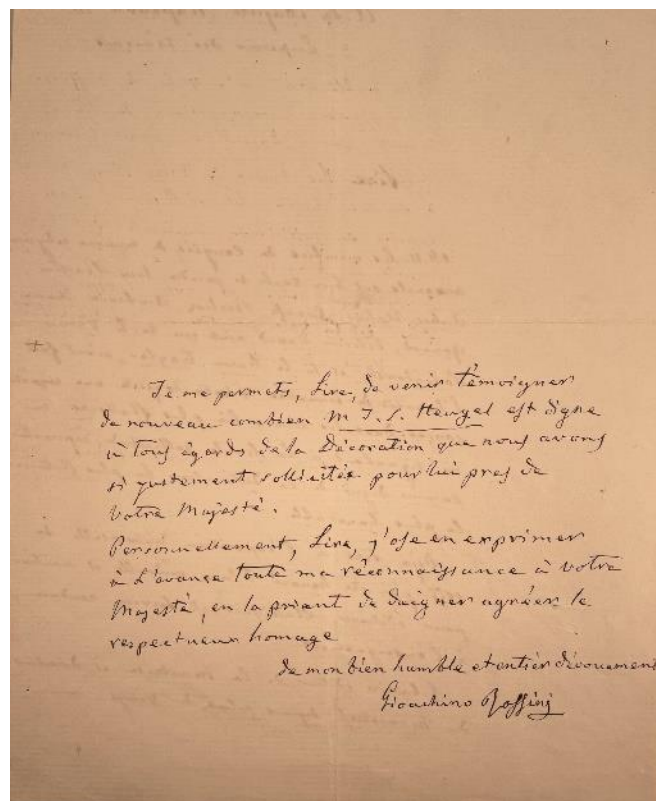 Je me permets, Sire, de venir témoigner
de nouveau combien M J. L. Heugel est digne
à tous égards de la Décoration que nous avons
si justement sollicitée pour lui pres de
Votre Majesté.
Personnellement, Sire, j'ose en exprimer
à L'avance toute ma réconnaissance à votre
Majesté, en la priant de daigner agréer le
respectueux homage
de mon bien humble et entier dévouement
Gioachino Rossini